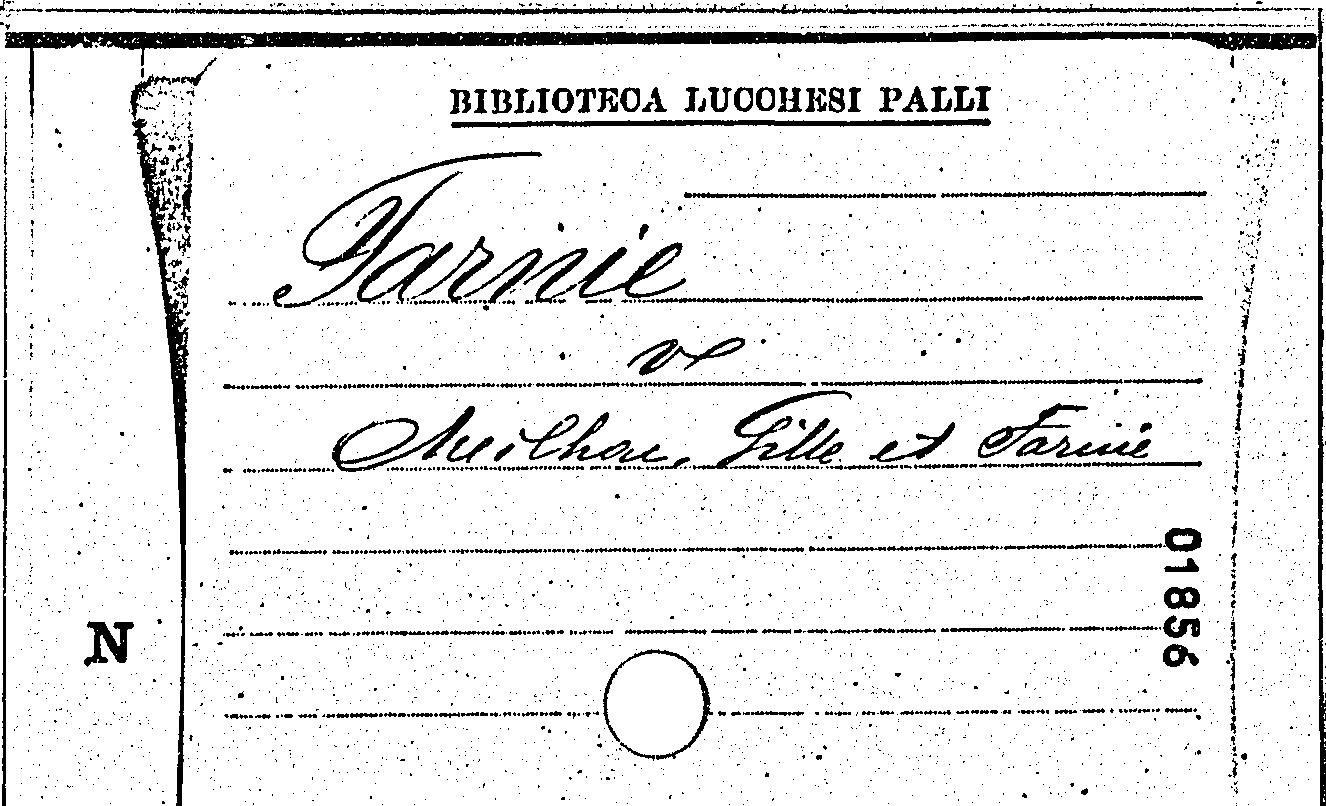 BIBLIOTECA LUCCHESI PALLI
Farnie
v
Meilhac, Gille et Farnie
01856
N